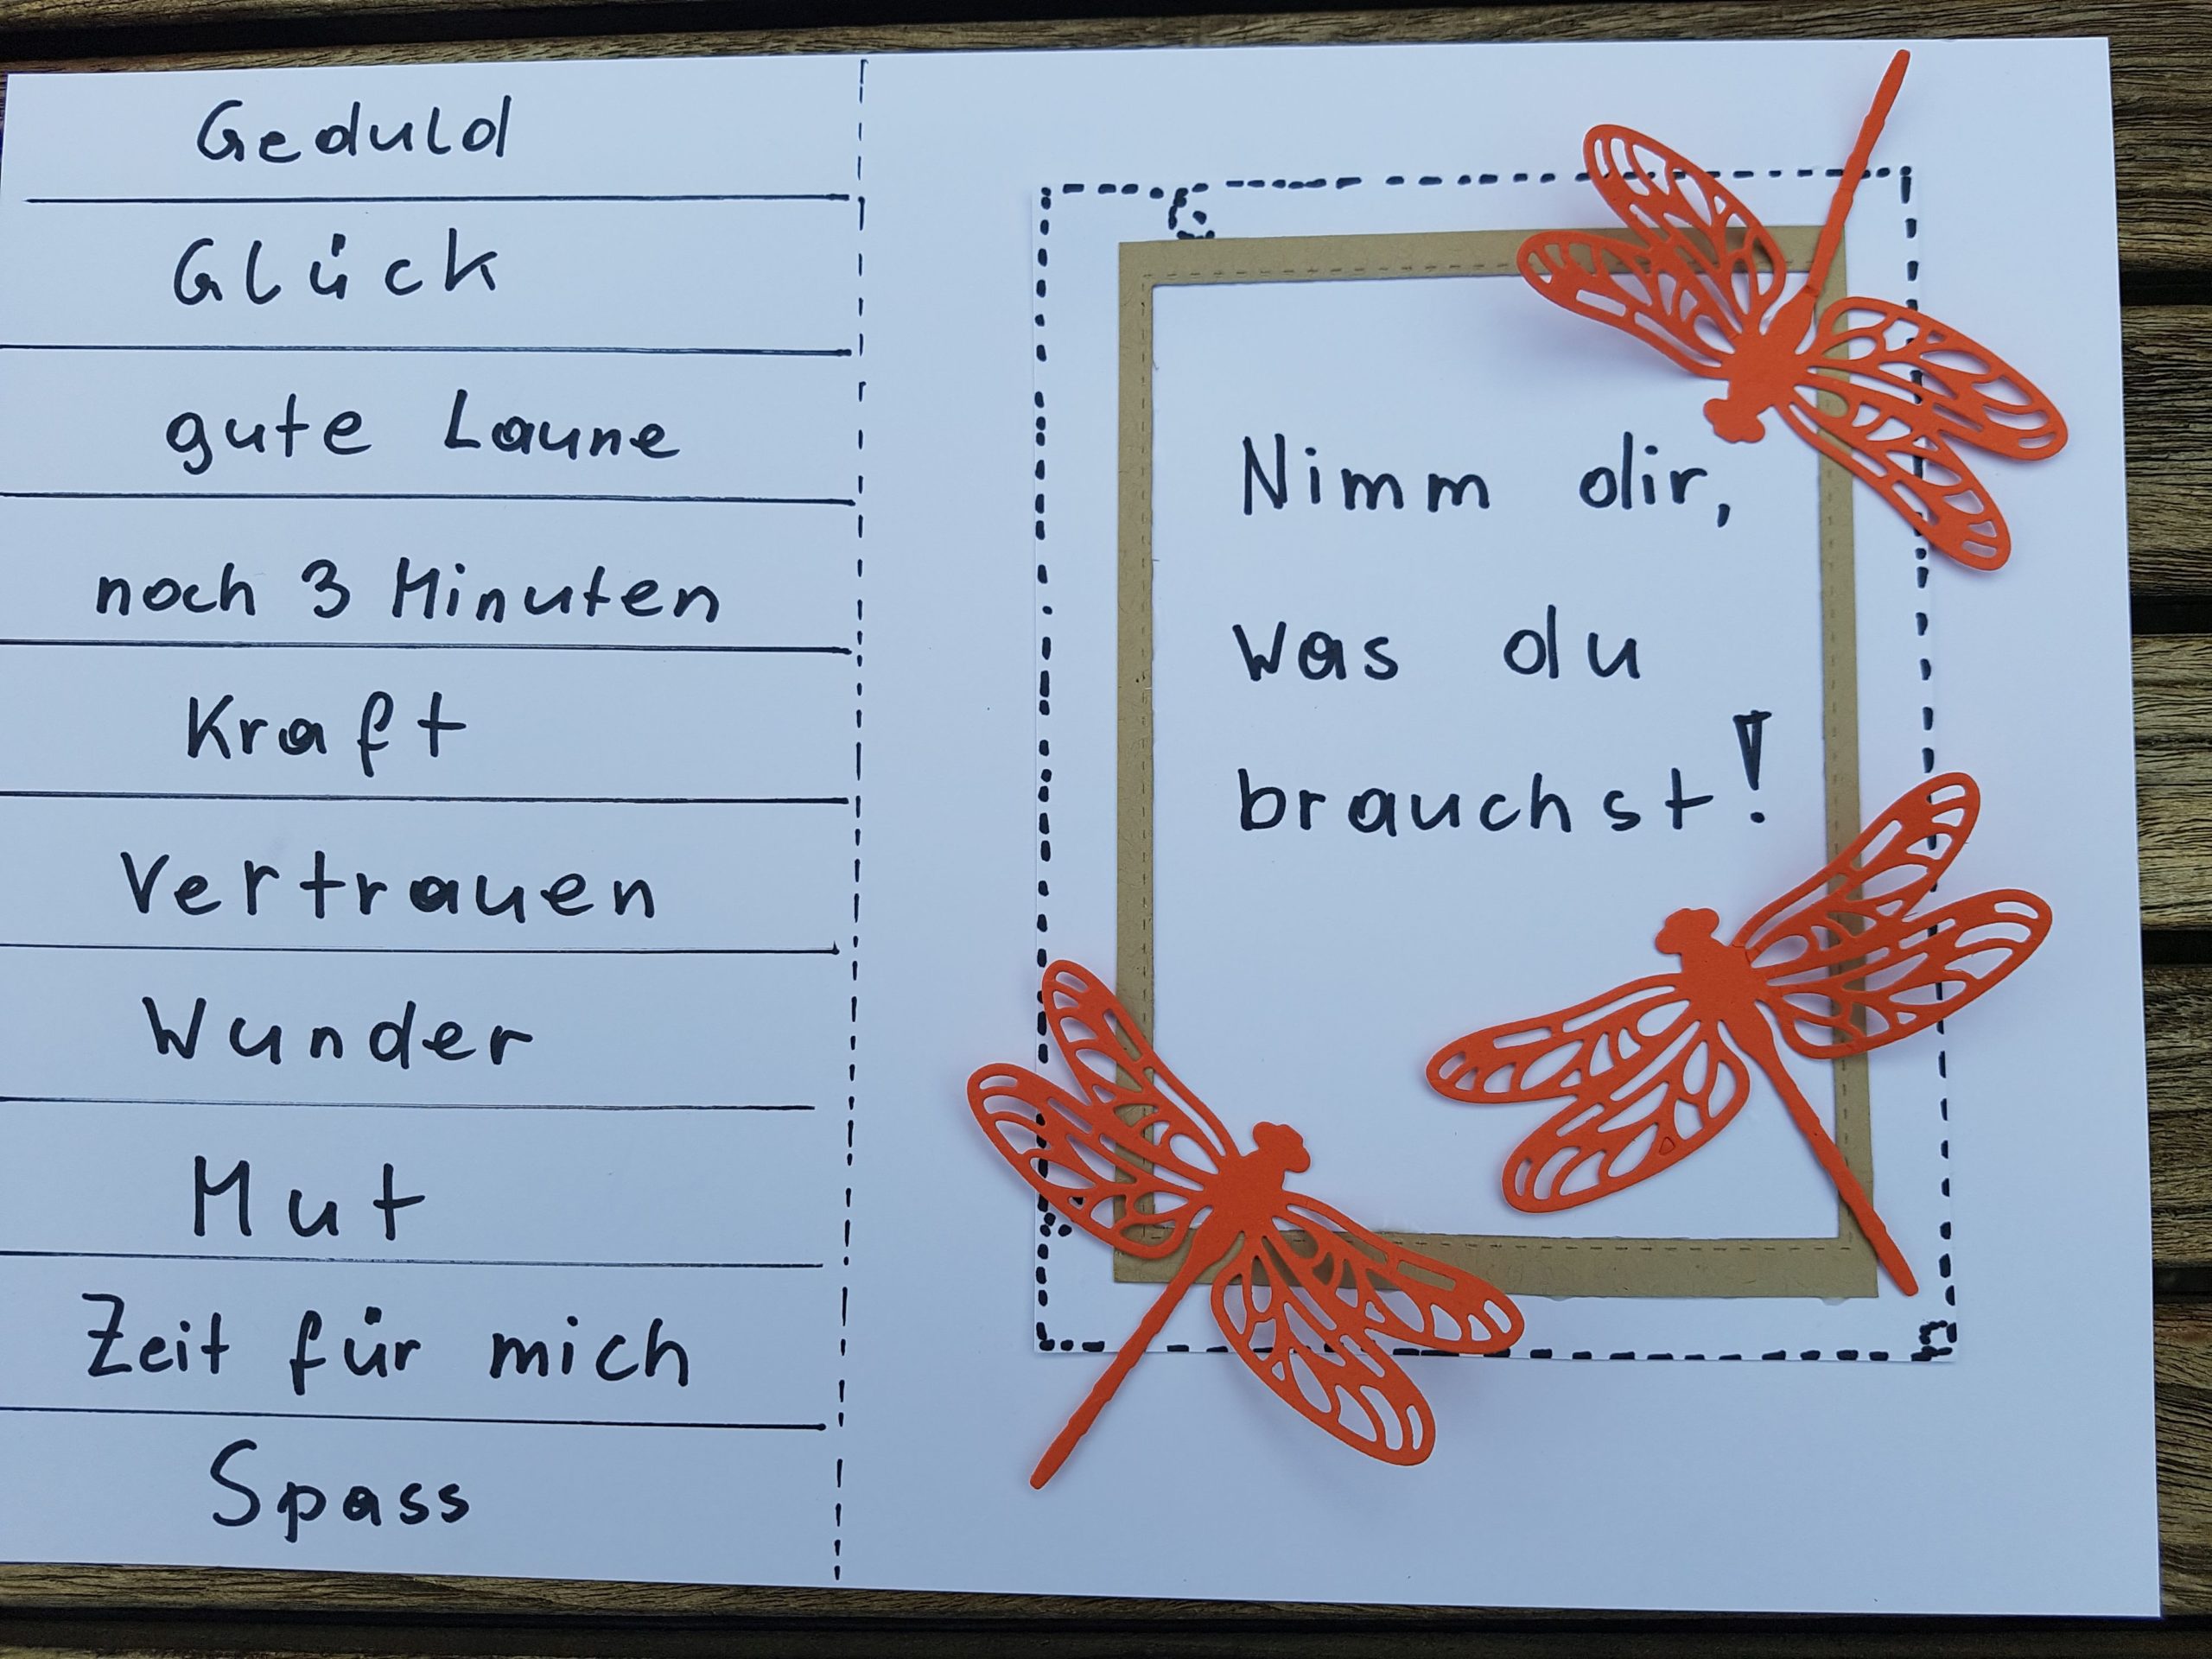 Geduld
Glück
gute Laune
noch 3 Minuten
Kraft
Vertrauen
Wunder
Mut
Zeit für mich
Spass
Nimm dir,
was du
brauchst!